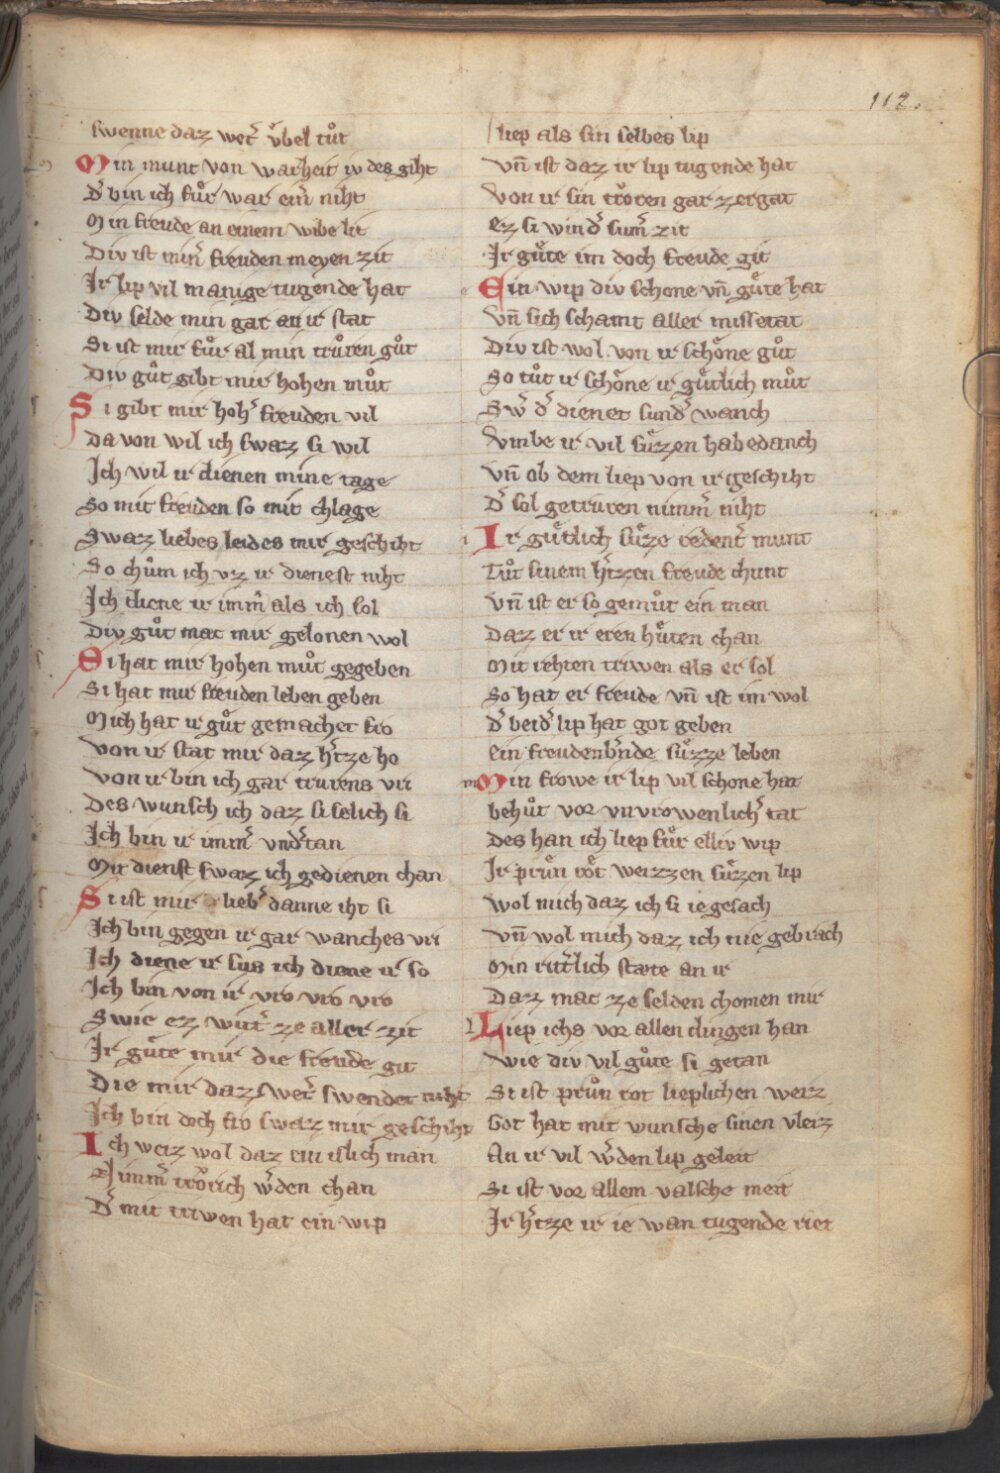 112.
swenne daz wetʼ vͦbel tuͦt
Min munt von warheit iv des giht
Dʼ bin ich fuͦr war einʼ niht
Min freude an einem wibe lit
Div ist minʼ freuden meyen zit
Ir lip vil manige tugende hat
Div selde min gar an ir stat
Si ist mir fuͦr al min truͦren guͦt
Div guͦt gibt mir hohen muͦt
Si gibt mir hohʼ freuden vil
Da von wil ich swaz si wil
Ich wil ir dienen mine tage
So mit freuden so mit chlage
Swaz liebes leides mir geschiht
So chuͦm ich vz ir dienest niht
Ich diene ir immʼ als ich sol
Div guͦt mac mir gelonen wol
Si hat mir hohen muͦt gegeben
Si hat mir freuden leben geben
Mich hat ir guͦt gemachet fro
Von ir stat mir daz hʼtze ho
Von ir bin ich gar trurens vri
Des wunsch ich daz si selich si
Ich bin ir immʼ vndʼtan
Mit dienst swaz ich gedienen chan
Si ist mir liebʼ danne iht si
Ich bin gegen ir gar wanches vri
Ich diene ir sus ich diene ir so
Ich bin von ir vro vro vro
Swie ez witʼt ze aller zit
Ir guͤte mir die freude git
Die mir daz wetʼ swendet niht
Ich bin doch fro swaz mir geschiht
Ich weiz wol daz ein islich man
Immʼ troͤrich wʼden chan
Dʼ mit triwen hat ein wip
liep als sin selbes lip
Vn̄ ist daz ir lip tugende hat
Von ir sin troͤren gar zergat
Ez si windʼ sumʼ zit
Ir guͤte im doch freude git
Ein wip div schone vn̄ guͤte hat
Vn̄ sich schamt aller missetat
Div ist wol von ir schoͤne guͦt
So tuͦt ir schoͤne ir guͤtlich muͦt
Swʼ dʼ dienet sundʼ wanch
Vmbe ir vil suͤzen habedanch
Vn̄ ob dem liep von ir geschiht
Dʼ sol getruren nimmʼ niht
Ir guͤtlich suͤze redentʼ munt
Tuͦt sinem hʼtzen freude chunt
Vn̄ ist er so gemuͦt ein man
Daz er ir eren huͤten chan
Mit rehten triwen als er sol
So hat er freude vn̄ ist im wol
Dʼ beidʼ lip hat got geben
Ein freudenbʼnde suͤzze leben
Min frowe ir lip vil schone hat
behuͦt vor vnvrowenlichʼ tat
Des han ich liep fuͤr elliv wip
Ir pruͦn roͤt weizzen suͤzen lip
Wol mich daz ich si ie gesach
Vn̄ wol mich daz ich nie gebrach
Min rittʼlich stæte an ir
Daz mac ze selden chomen mir
Liep ichs vor allen dingen han
Wie div vil guͦte si getan
Si ist pruͦn rot lieplichen weiz
Got hat mit wunsche sinen vleiz
An ir vil wʼden lip geleit
Si ist vor allem valsche meit
Ir hʼtze ir ie wan tugende riet